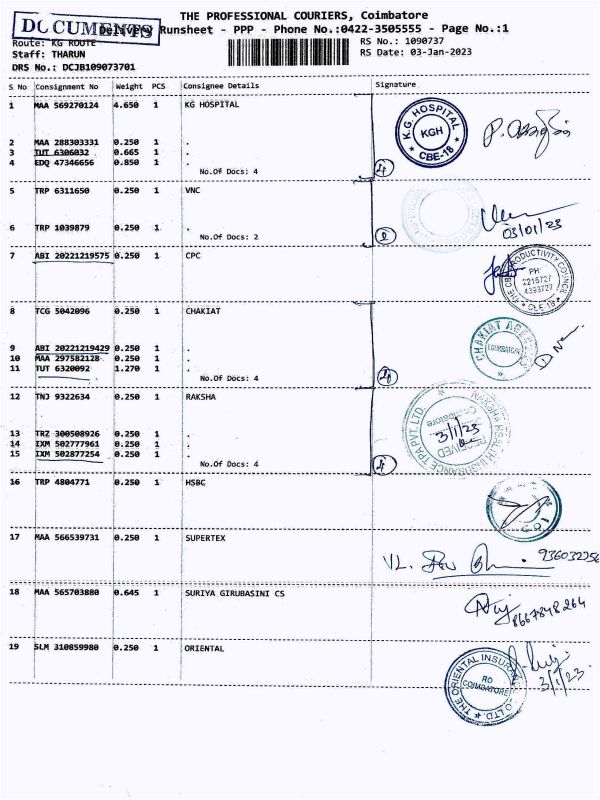 THE PROFESSIONAL COURIERS, Coimbatore
DOCUMENTS
Delivery Runsheet - PPP - Phone No.:0422-3505555 - Page No.:1
Route: KG ROUTE RS No.: 1090737
Staff: THARUN RS Date: 03-Jan-2023
DRS No.: DCJB109073701
S No Consignment No Weight PCS Consignee Details Signature
1 MAA 569270124 4.650 1 KG HOSPITAL
K.G. HOSPITAL
KGH
CBE-18
2 MAA 288303331 0.250 1 .
3 TUT 6306032 0.665 1 .
4 EDQ 47346656 0.850 1 .
No.Of Docs: 4 4
5 TRP 6311650 0.250 1 VNC
03/01/23
6 TRP 1039879 0.250 1 .
No.Of Docs: 2 2
7 ABI 20221219575 0.250 1 CPC
PRODUCTIVITY COUNCIL
PH:
2215727
4393727
CBE-18
8 TCG 5042096 0.250 1 CHAKIAT
CHAKIAT
COIMBATORE
9 ABI 20221219429 0.250 1 .
10 MAA 297582128 0.250 1 .
11 TUT 6320092 1.270 1 .
No.Of Docs: 4 4
12 TNJ 9322634 0.250 1 RAKSHA
RAKSHA HEALTH INSURANCE TPA PVT. LTD.
Coimbatore
3/1/23
RECEIVED
13 TRZ 300508926 0.250 1 .
14 IXM 502777961 0.250 1 .
15 IXM 502877254 0.250 1 .
No.Of Docs: 4 4
16 TRP 4804771 0.250 1 HSBC
17 MAA 566539731 0.250 1 SUPERTEX
18 MAA 565703880 0.645 1 SURIYA GIRUBASINI CS
8667848264
19 SLM 310859980 0.250 1 ORIENTAL
THE ORIENTAL INSURANCE CO LTD.
RO
COIMBATORE
3/1/23.